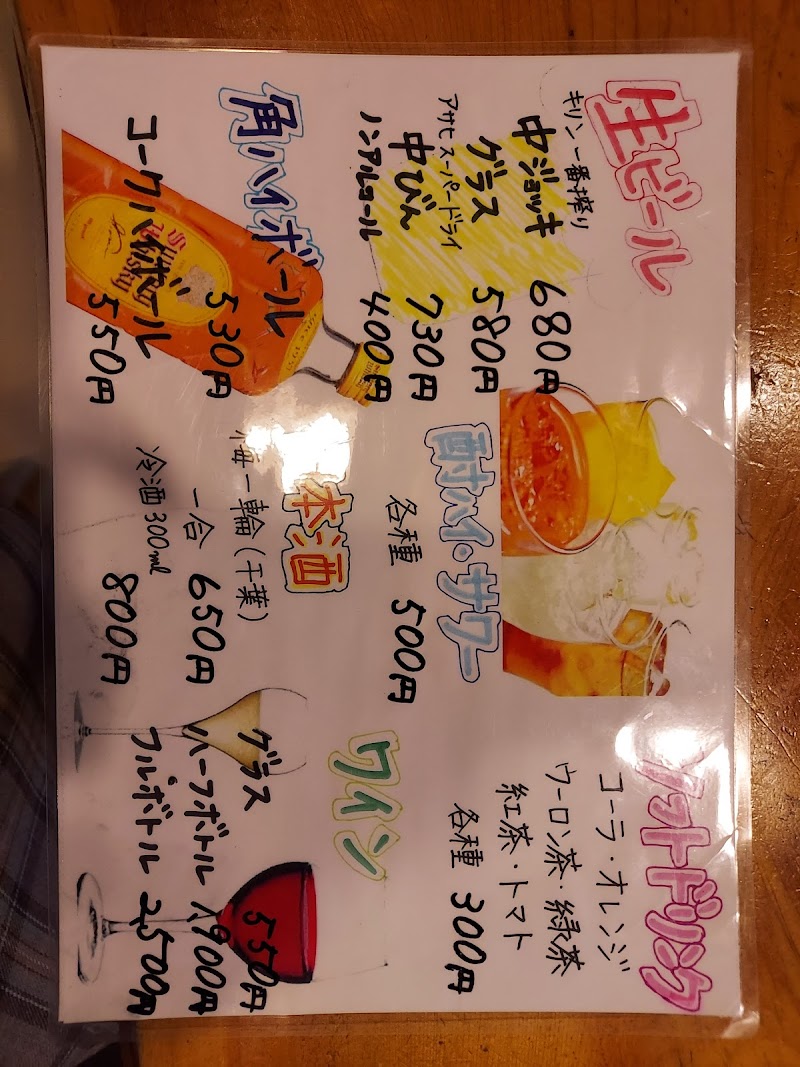 生ビール
キリン一番搾り
中ジョッキ 680円
グラス 580円
アサヒスーパードライ
中びん 730円
ノンアルコール 400円
角ハイボール
530円
コークハイボール
550円
酎ハイ・サワー
各種 500円
本酒
梅一輪(千葉)
一合 650円
冷酒300ml 800円
ソフトドリンク
コーラ・オレンジ
ウーロン茶・緑茶
紅茶・トマト
各種 300円
ワイン
グラス 550円
ハーフボトル 1,900円
フルボトル 2,500円